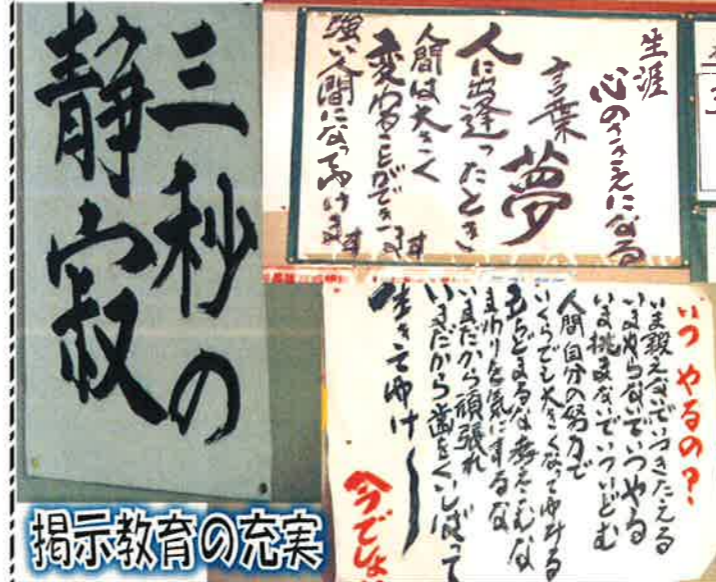 三秒の
静寂
生涯
心のささえになる
言葉 夢
人に出逢ったとき
人間は大きく
変わることができます
強い人間になってゆけます
いつ やるの?
いま鍛えないでいつきたえる
いまやらないでいつやる
いま挑まないでいついどむ
人間自分の努力で
いくらでも大きくなってゆける
立ちどまるな考えこむな
まわりを気にするな
いまだから頑張れ
いまだから歯をくいしばって
生きてゆけ
今でしょ
掲示教育の充実